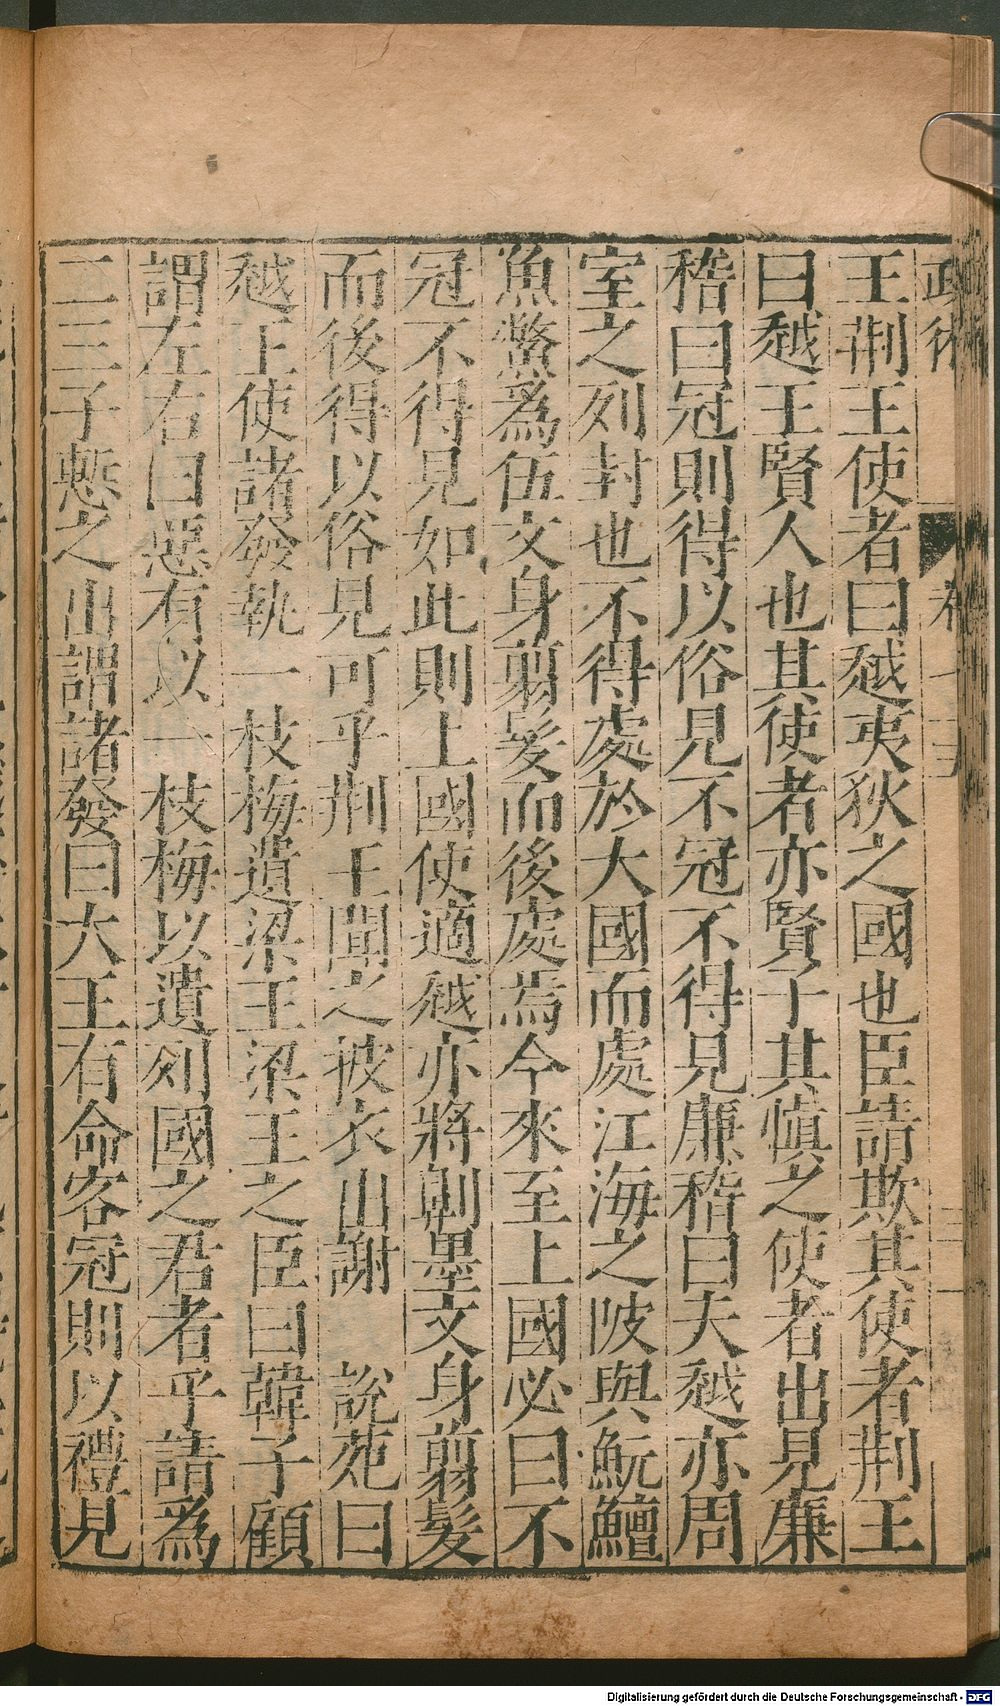 王荆王使者曰越夷狄之國也臣請欺其使者荆王
曰越王賢人也其使者亦賢子其慎之使者出見廉
稽曰冠則得以俗見不冠不得見廉稽曰夫越亦周
室之列封也不得處於大國而處江海之陂與魭鱣
魚鱉爲伍文身翦髮而後處焉今來至上國必曰不
冠不得見如此則上國使適越亦將劓墨文身翦髮
而後得以俗見可乎荆王聞之披衣出謝 說苑曰
越王使諸發執一枝梅遺梁王梁王之臣曰韓子顧
謂左右曰惡有以一枝梅以遺列國之君者乎請爲
二三子慙之出謂諸發曰大王有命客冠則以禮見
Digitalisierung gefördert durch die Deutsche Forschungsgemeinschaft - DFG